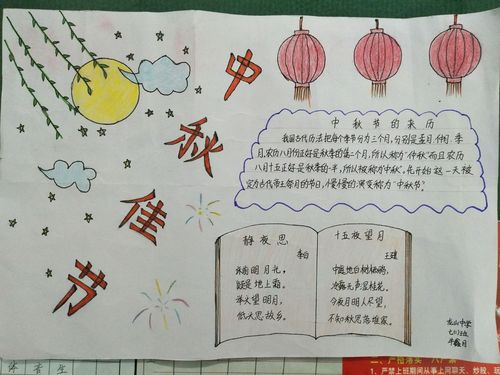 中秋佳节
中秋节的来历
我国古代历法把每个季节分为三个月,分别是孟月、仲月、季
月,农历八月份正好是秋季的第二个月,所以称为“仲秋”而且农历
八月十五正好是秋季的一半,所以被称为“中秋”。先开始这一天被
定为古代帝王祭月的节日,慢慢的演变称为“中秋节”。
静夜思
李白
床前明月光,
疑是地上霜。
举头望明月,
低头思故乡。
十五夜望月
王建
中庭地白树栖鸦,
冷露无声湿桂花。
今夜月明人尽望,
不知秋思落谁家。
龙山中学
七(1)班
1、严禁上班期间从事上网聊天、炒股、玩